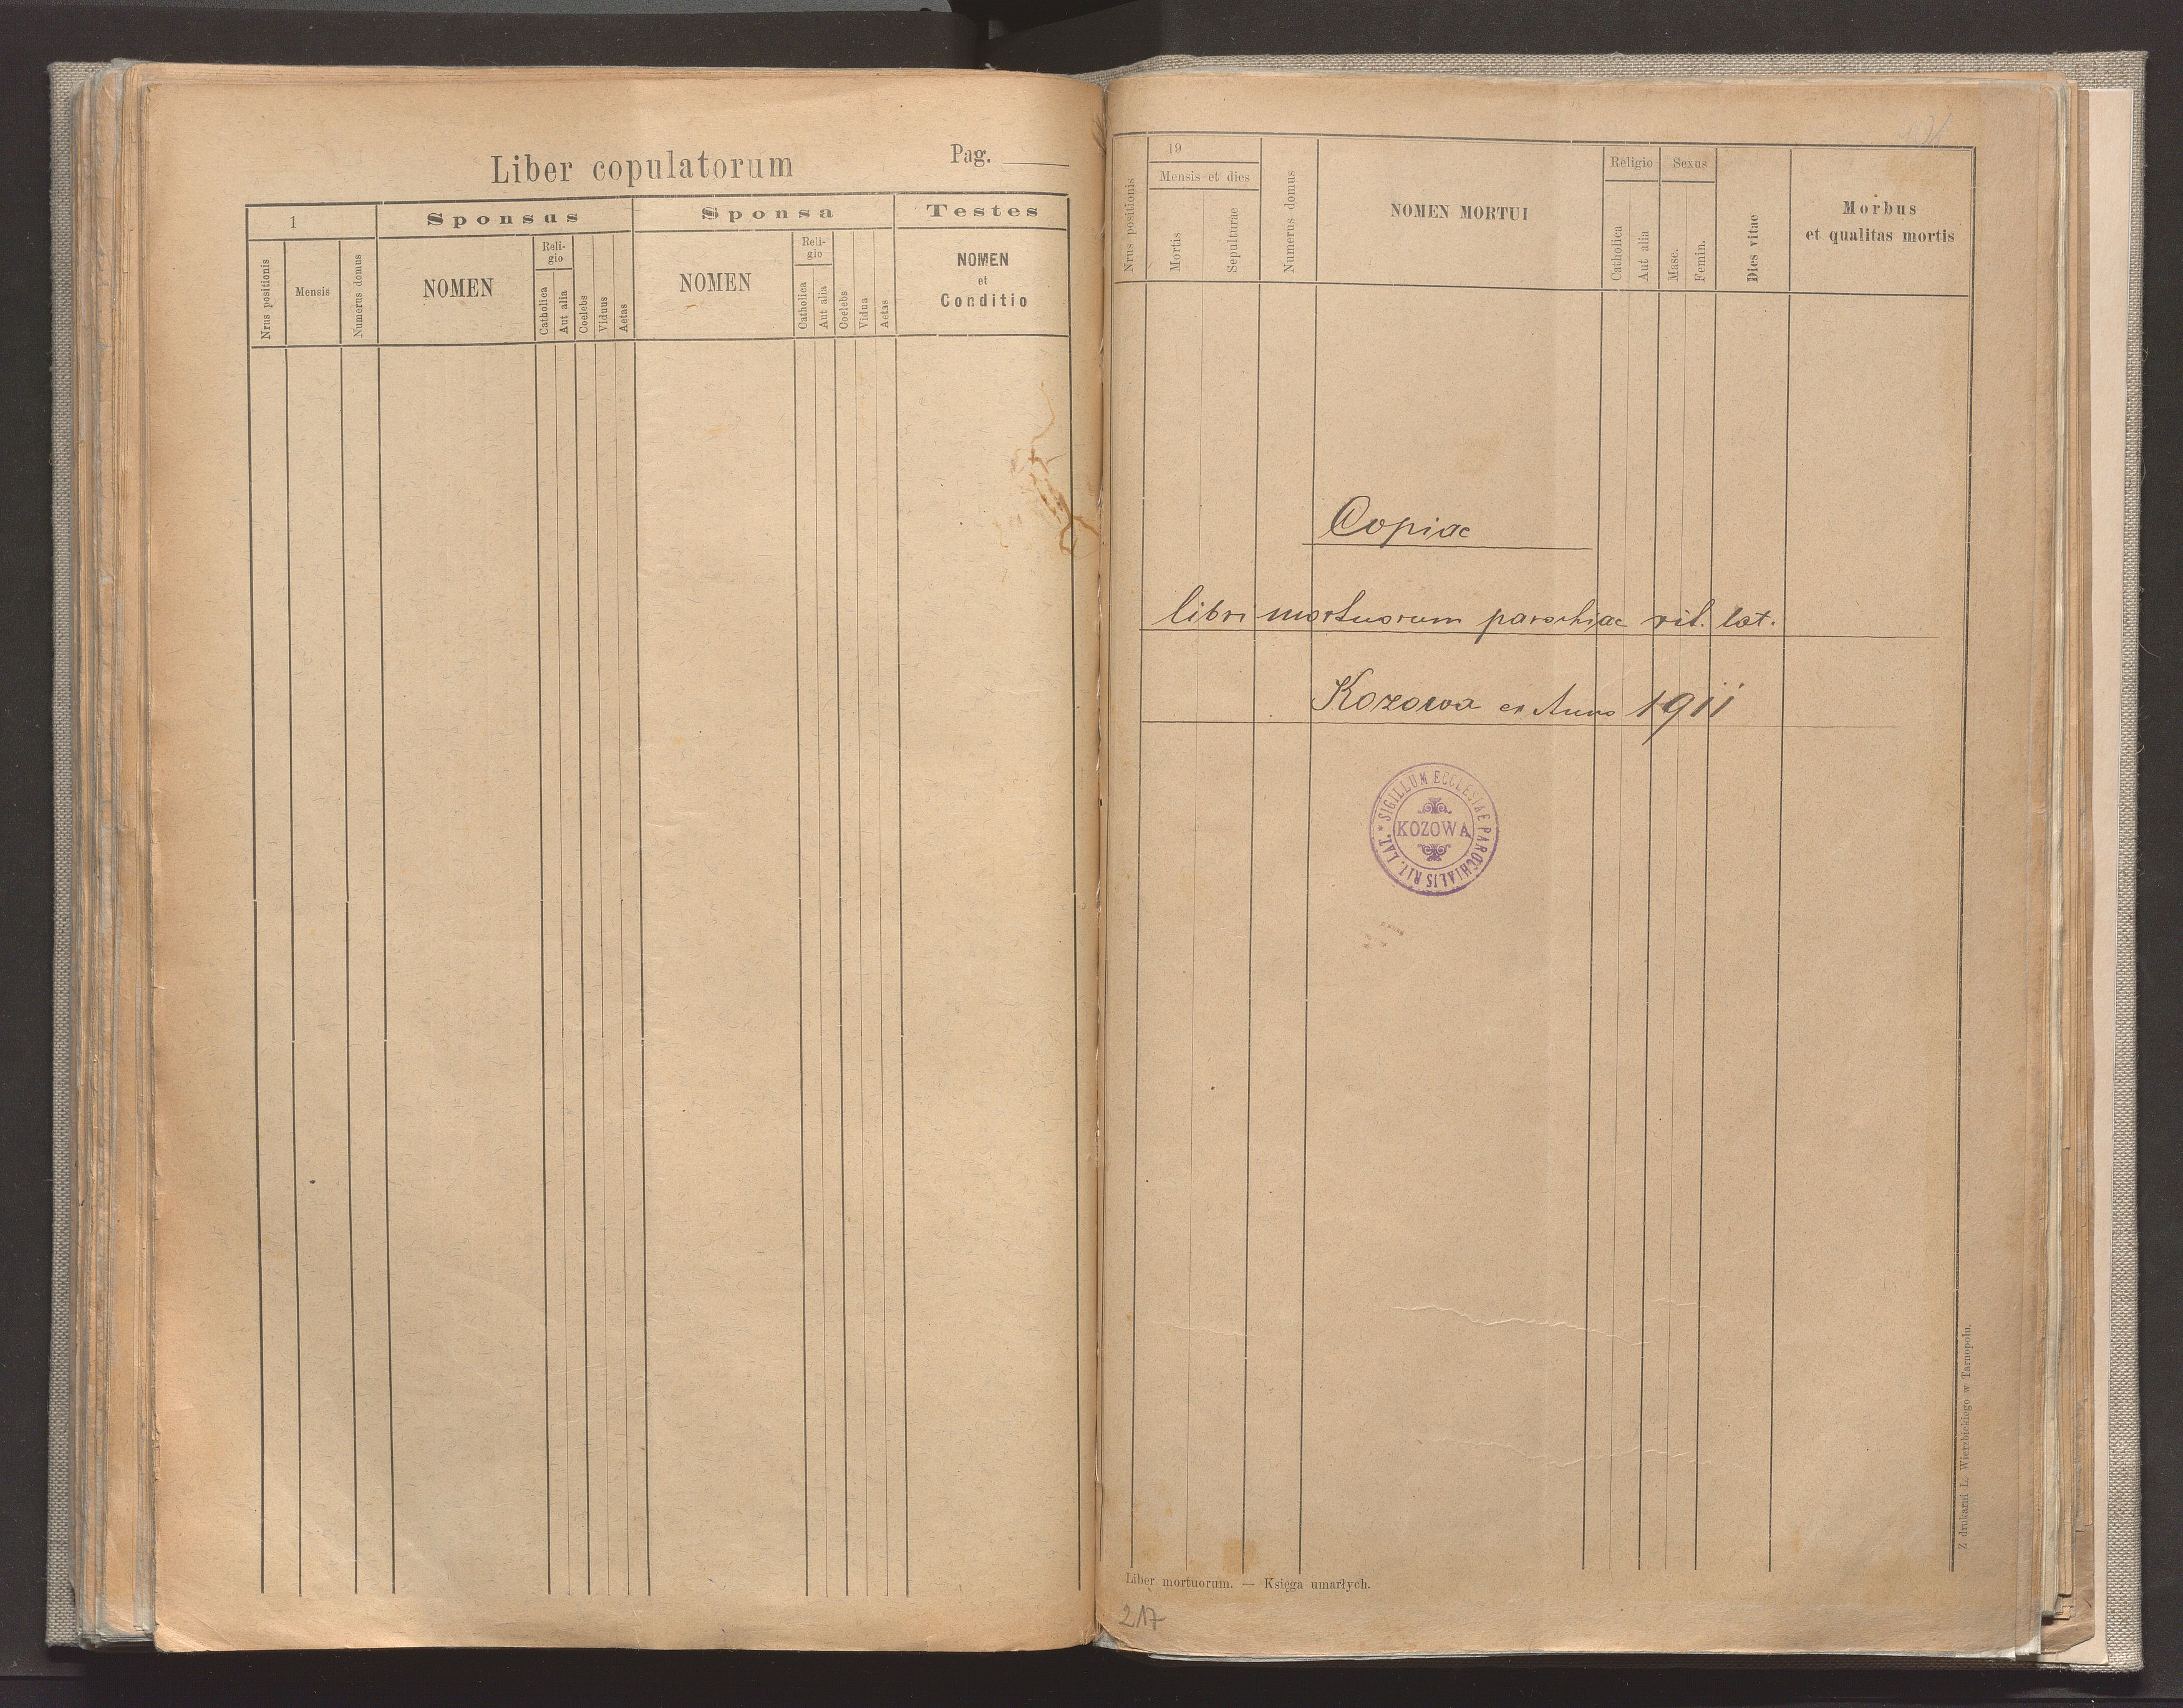 Liber copulatorum
Pag.
1
Sponsus
Sponsa
Testes
Nrus positionis
Mensis
Numerus domus
NOMEN
Reli-
gio
Catholica
Aut alia
Coelebs
Viduus
Aetas
NOMEN
Reli-
gio
Catholica
Aut alia
Coelebs
Vidua
Aetas
NOMEN
et
Conditio
Nrus positionis
19
Mensis et dies
Mortis
Sepulturae
Numerus domus
NOMEN MORTUI
Religio
Catholica
Aut alia
Sexus
Masc.
Femin.
Dies vitae
Morbus
et qualitas mortis
Copiae
libri mortuorum parochiae rit. lat.
Kozowa ex Anno 1911
* SIGILLUM ECCLESIAE PAROCHIALIS RIT. LAT.
KOZOWA
Z drukarni L. Wierzbickiego w Tarnopolu.
Liber mortuorum. — Księga umarłych.
217